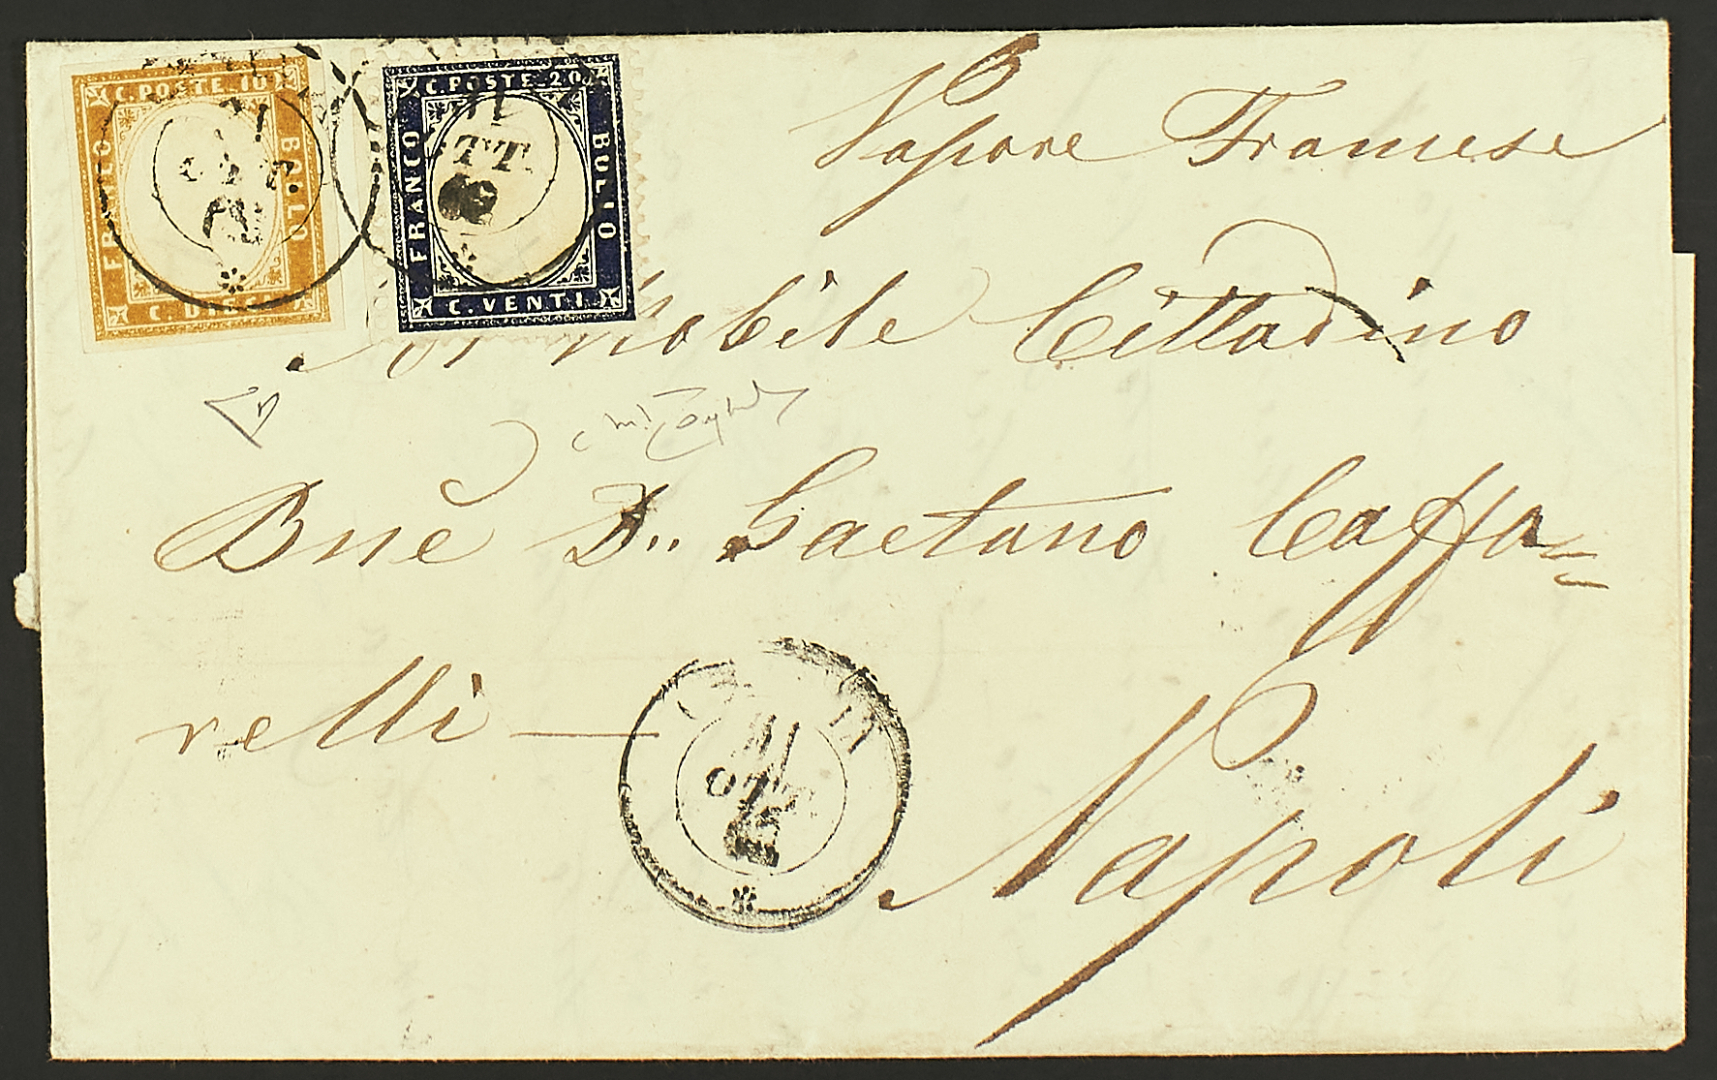 C. POSTE 10
FRANCO
BOLLO
C. DIECI
C. POSTE 20
FRANCO
BOLLO
C. VENTI
TT.
Vapore Francese
Al Nobile Cittadino
Bnē D.. Gaetano Caffa=
relli —
OTT.
Napoli